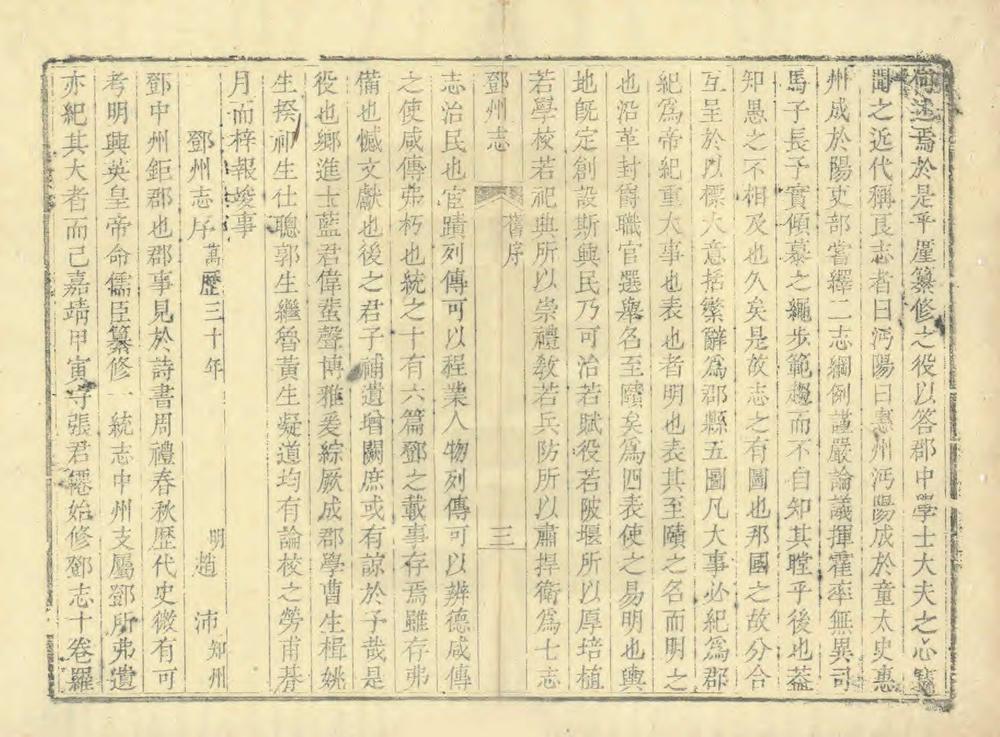 何述焉於是乎厪纂修之役以答郡中學士大夫之心竊
聞之近代稱良志者曰沔陽曰惠州沔陽成於童太史惠
州成於陽吏部嘗繹二志綱例謹嚴論議揮霍率無異司
馬子長予實傾慕之繩步範趨而不自知其瞠乎後也葢
知愚之不相及也久矣是故志之有圖也那國之故分合
互呈於以標大意括縈辭爲郡縣五圖凡大事必紀爲郡
紀爲帝紀重大事也表也者明也表其至賾之名而明之
也沿革封爵職官選舉名至賾矣爲四表使之易明也輿
地旣定創設斯興民乃可治若賦役若陂堰所以厚培植
若學校若祀典所以崇禮敎若兵防所以肅捍衛爲七志
鄧州志 舊序 三
志治民也宦蹟列傳可以程業人物列傳可以辨德咸傳
之使咸傳弗朽也統之十有六篇鄧之載事存焉雖存弗
備也憾文獻也後之君子補遺增闕庶或有諒於予哉是
役也鄉進士藍君偉蜚聲博雅爰綜厥成郡學曹生楫姚
生揆祁生仕聰郭生繼魯黃生凝道均有論校之勞甫朞
月而梓報竣事
鄧州志序 萬歷三十年 明趙沛知州
鄧中州鉅郡也郡事見於詩書周禮春秋歷代史微有可
考明興英皇帝命儒臣纂修一統志中州支屬鄧所弗遺
亦紀其大者而己嘉靖甲寅守張君僊始修鄧志十卷羅